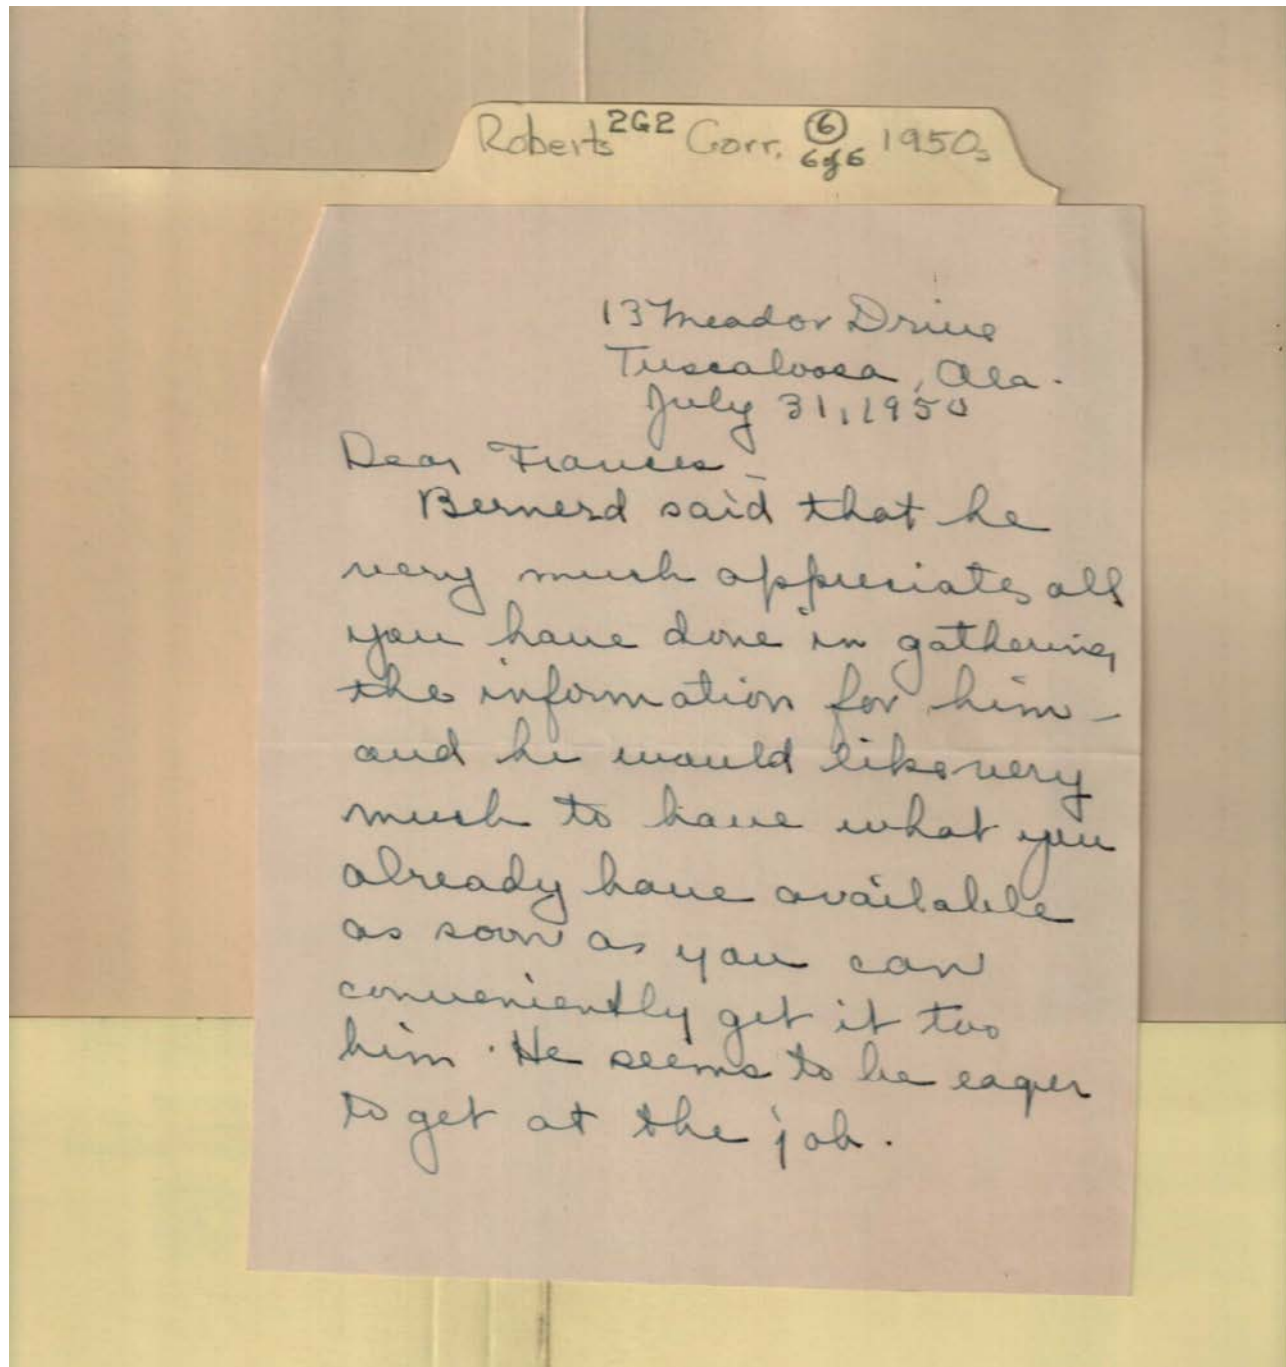 Roberts 2G2 Corr. 6 1950s
6 of 6
13 Meador Drive
Tuscaloosa, Ala.
July 31, 1950
Dear Frances -
Bernerd said that he
very much appreciates all
you have done in gathering
the information for him -
and he would like very
much to have what you
already have available
as soon as you can
conveniently get it too
him. He seems to be eager
to get at the job.